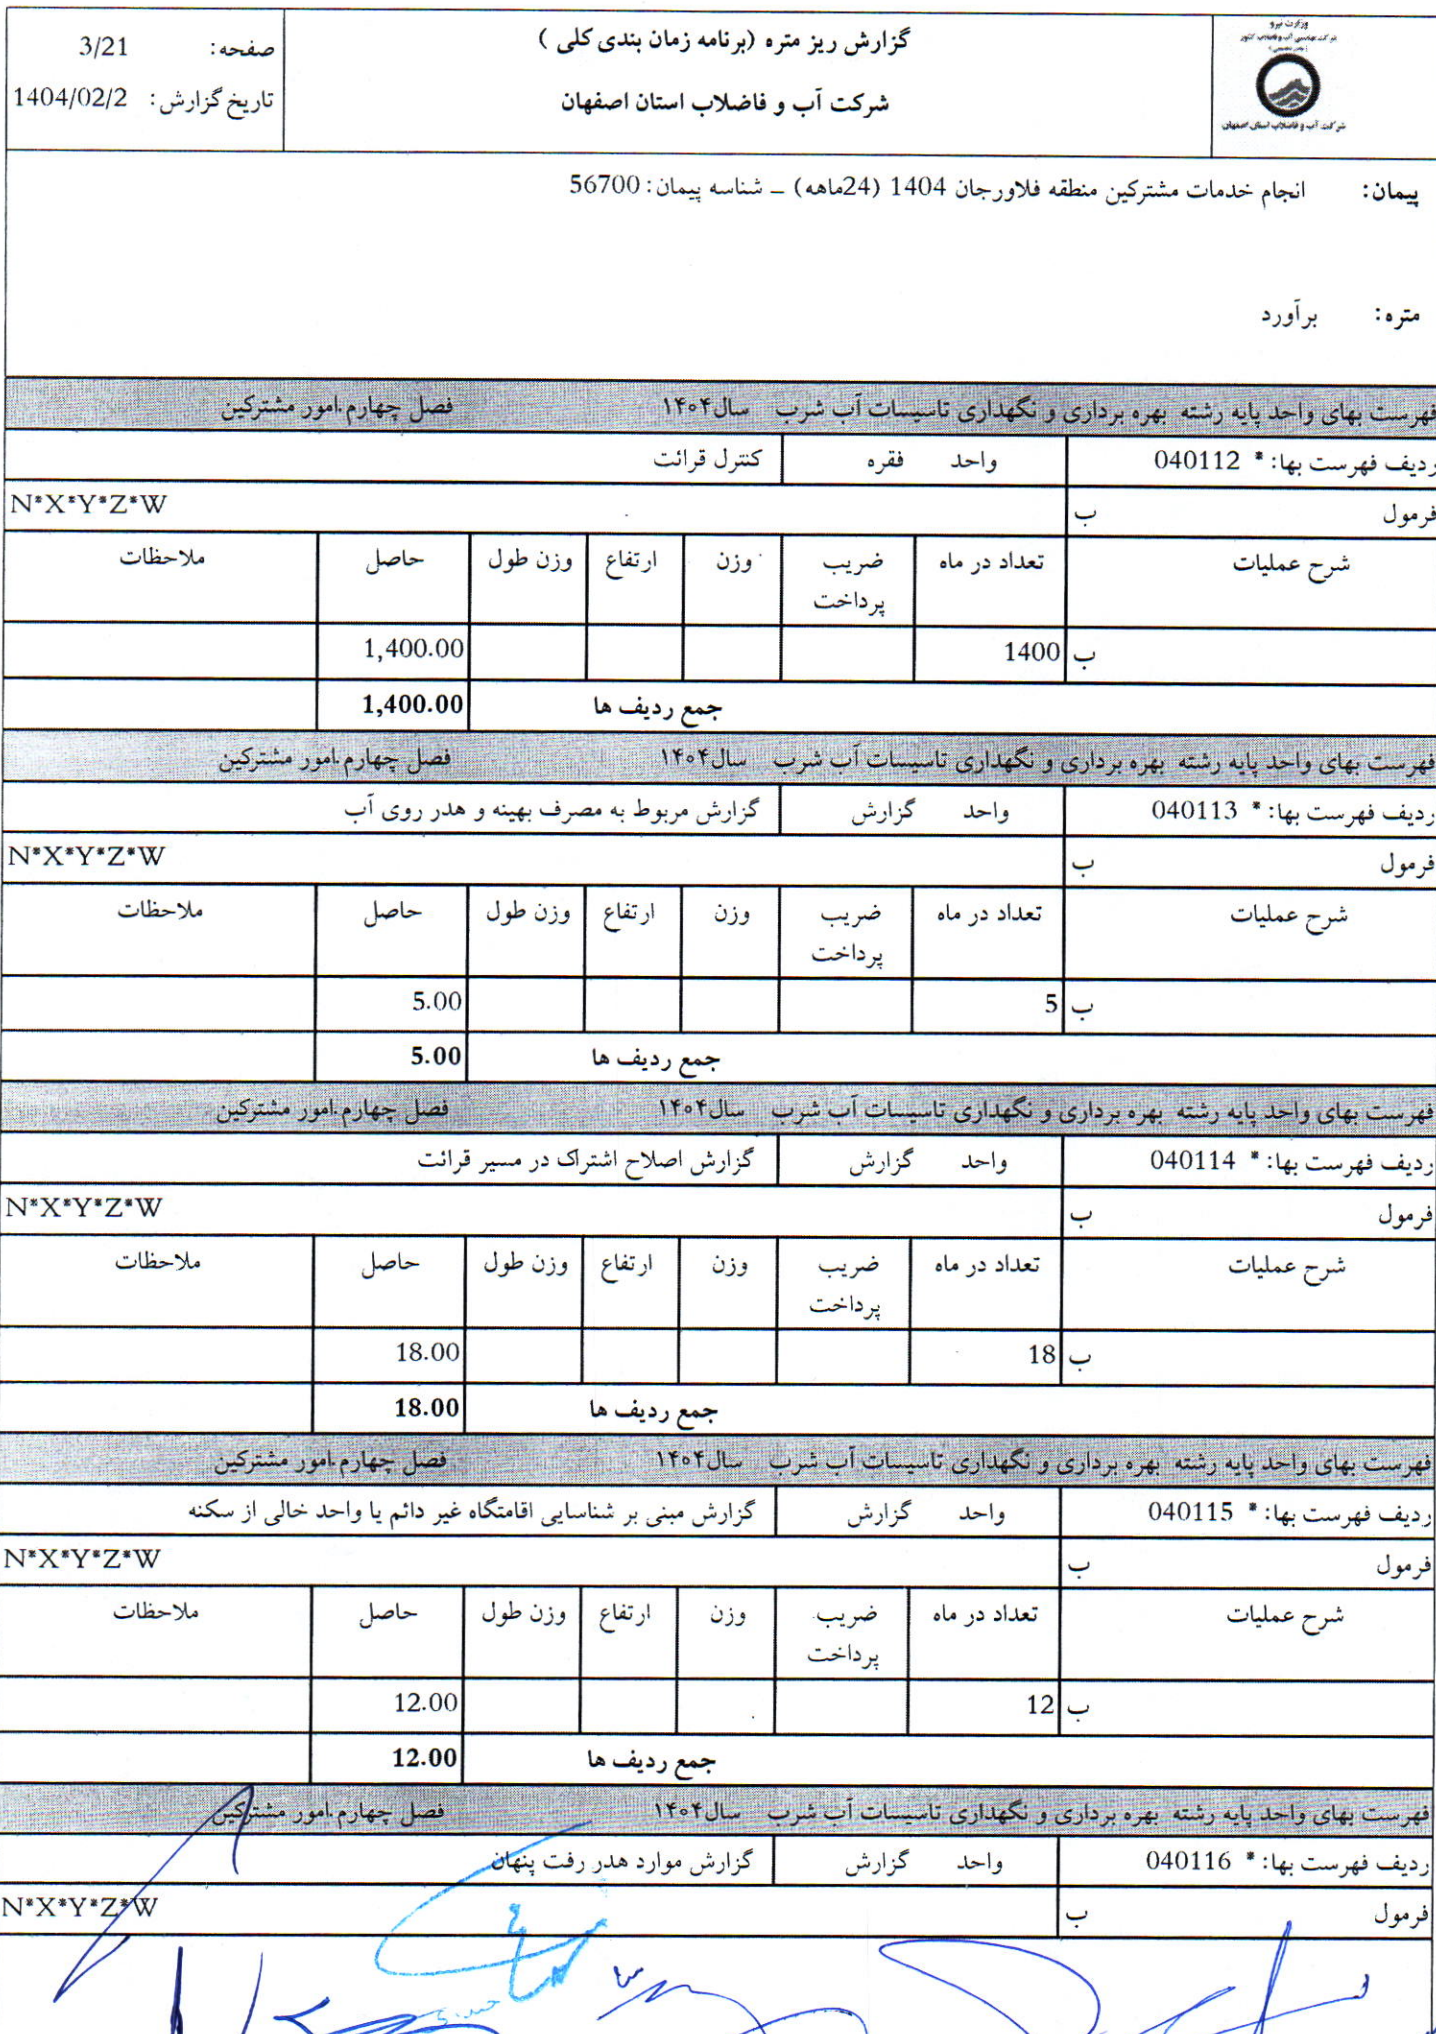 وزارت نیرو
شرکت مهندسی آب و فاضلاب کشور
شرکت آب و فاضلاب استان اصفهان
گزارش ریز متره (برنامه زمان بندی کلی )
شرکت آب و فاضلاب استان اصفهان
صفحه: 3/21
تاریخ گزارش: 1404/02/2
پیمان: انجام خدمات مشترکین منطقه فلاورجان 1404 (24ماهه) _ شناسه پیمان: 56700
متره: برآورد
فهرست بهای واحد پایه رشته بهره برداری و نگهداری تاسیسات آب شرب سال۱۴۰۴ فصل چهارم.امور مشترکین
ردیف فهرست بها: * 040112 واحد فقره کنترل قرائت
فرمول ب N*X*Y*Z*W
شرح عملیات تعداد در ماه ضریب پرداخت وزن ارتفاع وزن طول حاصل ملاحظات
ب 1400 1,400.00
جمع ردیف ها 1,400.00
فهرست بهای واحد پایه رشته بهره برداری و نگهداری تاسیسات آب شرب سال۱۴۰۴ فصل چهارم.امور مشترکین
ردیف فهرست بها: * 040113 واحد گزارش گزارش مربوط به مصرف بهینه و هدر روی آب
فرمول ب N*X*Y*Z*W
شرح عملیات تعداد در ماه ضریب پرداخت وزن ارتفاع وزن طول حاصل ملاحظات
ب 5 5.00
جمع ردیف ها 5.00
فهرست بهای واحد پایه رشته بهره برداری و نگهداری تاسیسات آب شرب سال۱۴۰۴ فصل چهارم.امور مشترکین
ردیف فهرست بها: * 040114 واحد گزارش گزارش اصلاح اشتراک در مسیر قرائت
فرمول ب N*X*Y*Z*W
شرح عملیات تعداد در ماه ضریب پرداخت وزن ارتفاع وزن طول حاصل ملاحظات
ب 18 18.00
جمع ردیف ها 18.00
فهرست بهای واحد پایه رشته بهره برداری و نگهداری تاسیسات آب شرب سال۱۴۰۴ فصل چهارم.امور مشترکین
ردیف فهرست بها: * 040115 واحد گزارش گزارش مبنی بر شناسایی اقامتگاه غیر دائم یا واحد خالی از سکنه
فرمول ب N*X*Y*Z*W
شرح عملیات تعداد در ماه ضریب پرداخت وزن ارتفاع وزن طول حاصل ملاحظات
ب 12 12.00
جمع ردیف ها 12.00
فهرست بهای واحد پایه رشته بهره برداری و نگهداری تاسیسات آب شرب سال۱۴۰۴ فصل چهارم.امور مشترکین
ردیف فهرست بها: * 040116 واحد گزارش گزارش موارد هدر رفت پنهان
فرمول ب N*X*Y*Z*W